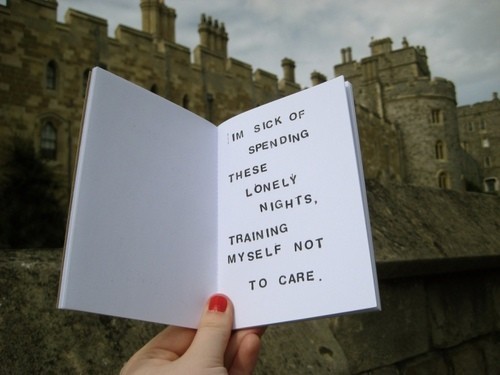 IM SICK OF
SPENDING
THESE
LONELY
NIGHTS,
TRAINING
MYSELF NOT
TO CARE.